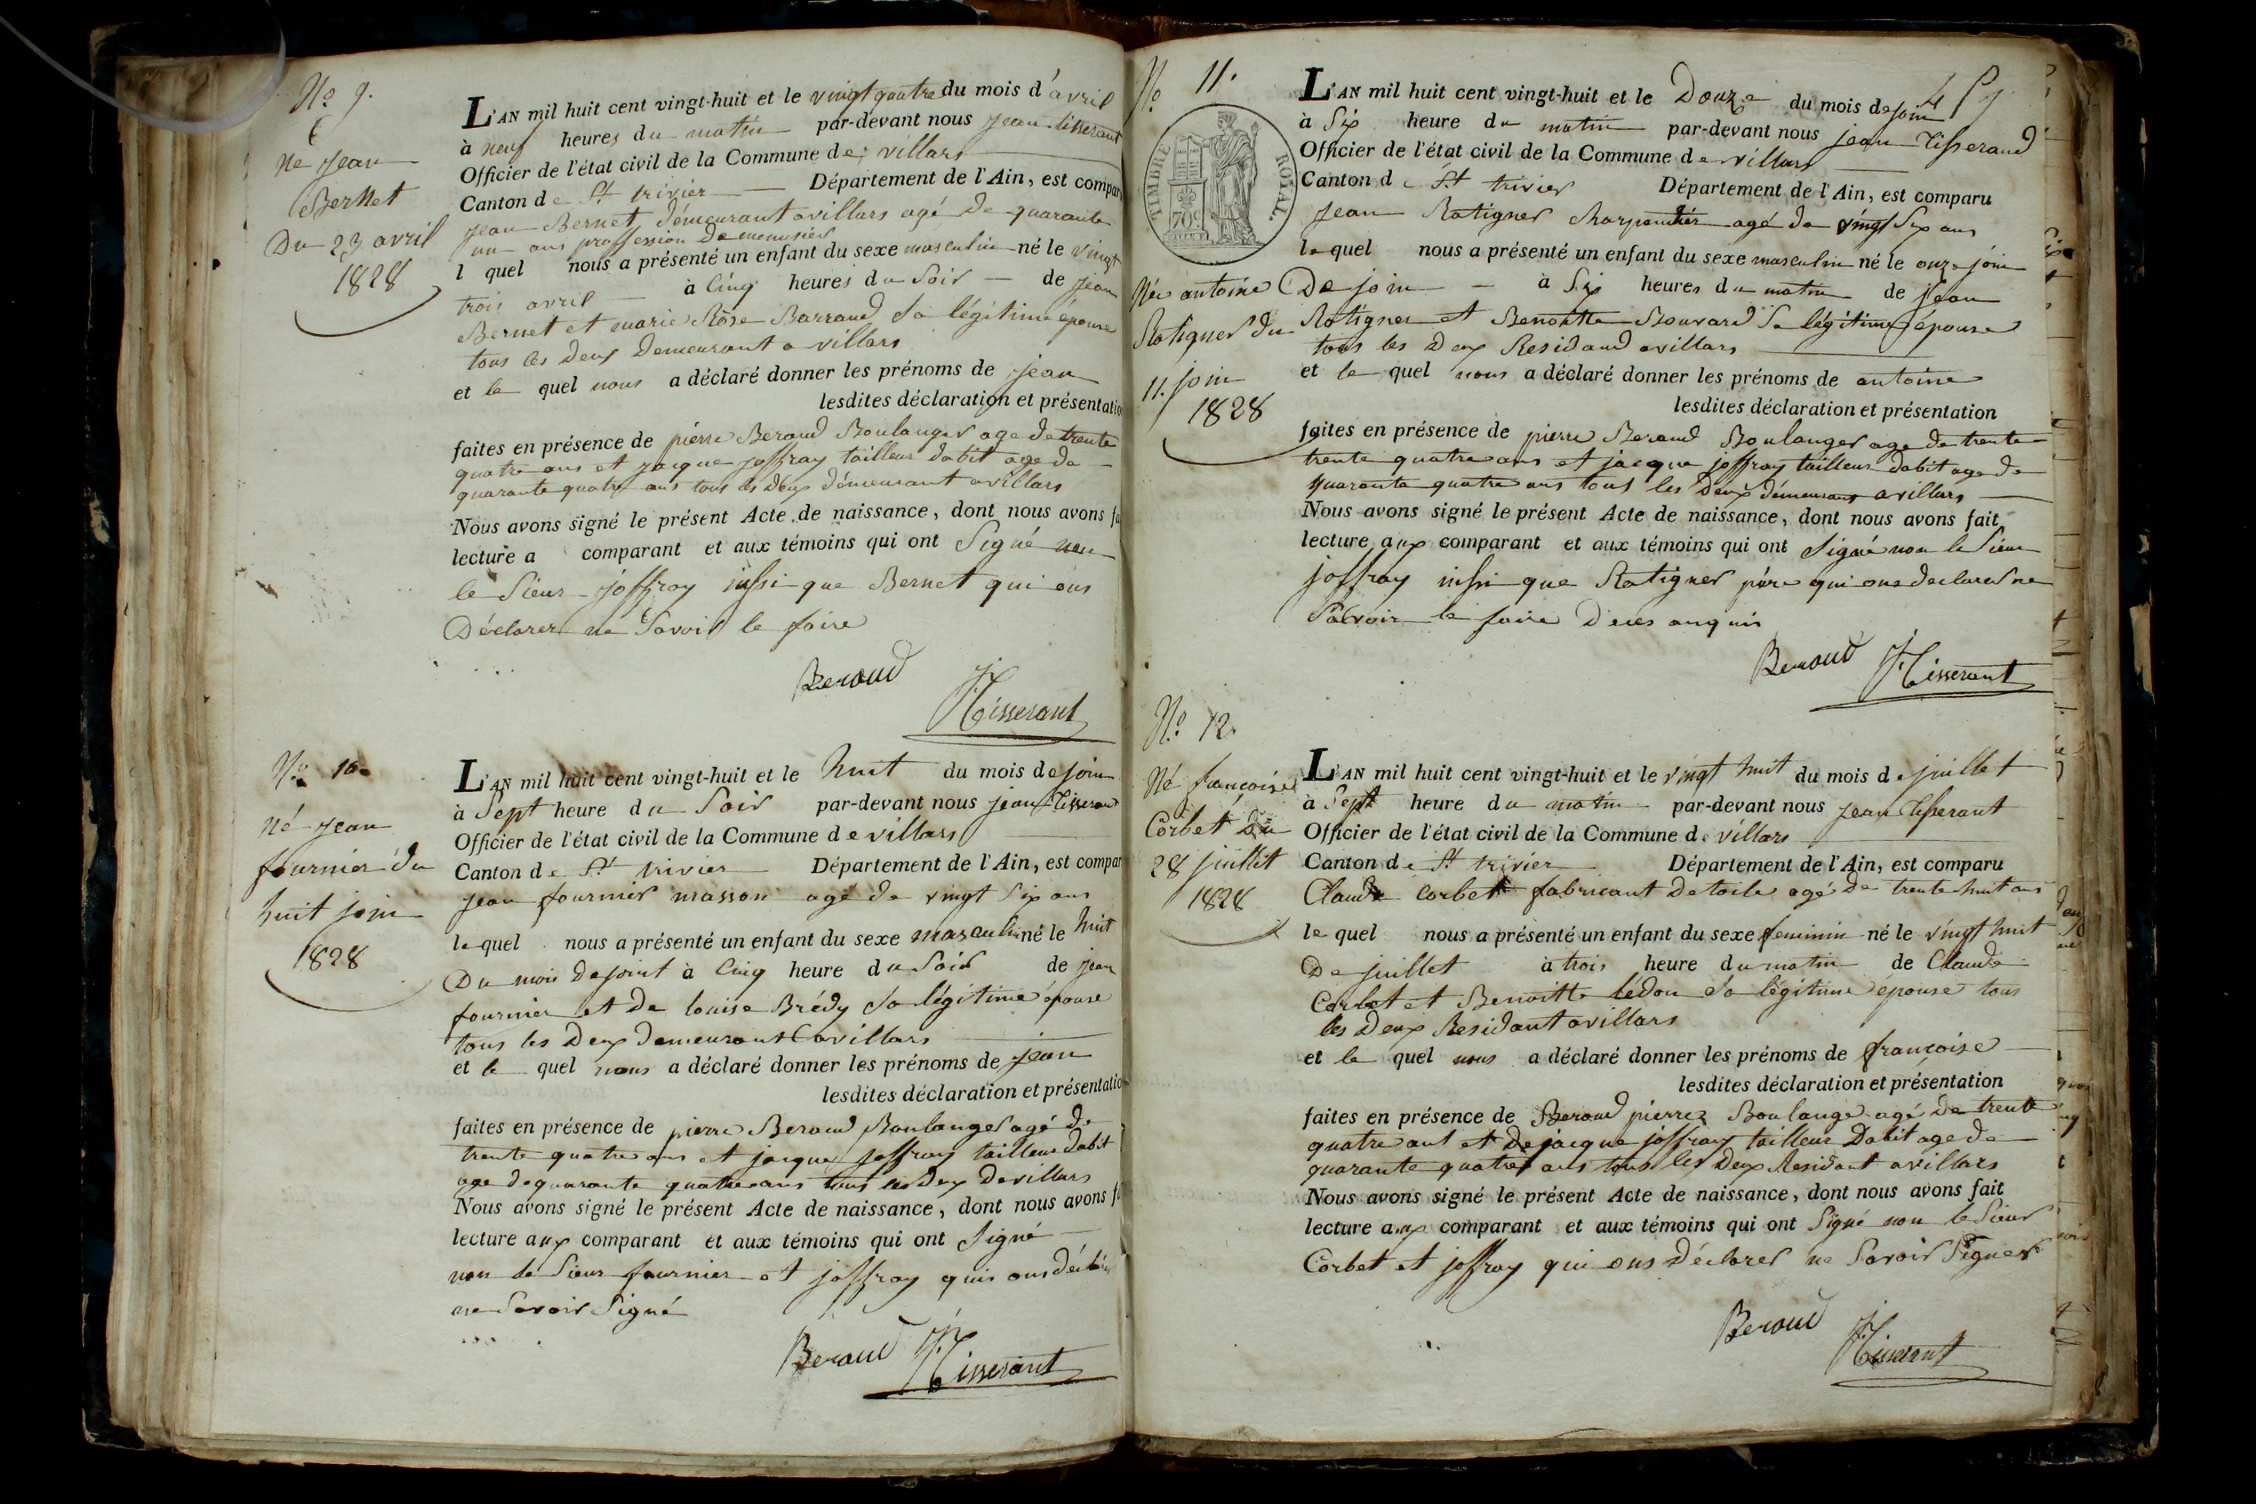 No 9.
né Jean
Bernet
Du 23 avril
1828
L'AN mil huit cent vingt-huit et le vingt quatre du mois d'avril
à neuf heures du matin par-devant nous jean tisserant
Officier de l'état civil de la Commune de villars
Canton de St trivier Département de l'Ain, est compar
jean Bernet démeurant a villars agé de quarante
un ans proffession de menusier
l quel nous a présenté un enfant du sexe masculin né le vingt
trois avril à Cinq heures du Soir de jean
Bernet et marie Rose Barraud Sa légitime épouse
tous les Deux Demeurant a villars
et le quel nous a déclaré donner les prénoms de jean
lesdites déclaration et présentatio
faites en présence de pierre Beraud Boulanger age de trente
quatre ans et jacque joffray tailleur dabit age de
quarante quatre ans tous les Deux démeurant a villars
Nous avons signé le présent Acte de naissance, dont nous avons fa
lecture a comparant et aux témoins qui ont Signé non
le Sieur joffray inssi que Bernet qui ons
Déclarer ne Savoir le faire
Beraud
JTisserant
No 10
né jean
fournier du
huit join
1828
L'AN mil huit cent vingt-huit et le huit du mois de join
à Sept heure du Soir par-devant nous jean Tisserand
Officier de l'état civil de la Commune de villars
Canton de St trivier Département de l'Ain, est compar
jean fournier masson agé de vingt Six ans
le quel nous a présenté un enfant du sexe masculin né le huit
Du mois de joint à Cinq heure du Soir de jean
fournier et De louise Brédy Sa légitime épouse
tous les Deux demeurant a villars
et le quel nous a déclaré donner les prénoms de jean
lesdites déclaration et présentatio
faites en présence de pierre Beraud Boulanger agé de
trente quatre ans et jacque joffray tailleur dabit
age de quarante quatre ans tous les Deux De villars
Nous avons signé le présent Acte de naissance, dont nous avons f
lecture aux comparant et aux témoins qui ont Signé
non le Sieur fournier et joffray quis ons
ne Savoir Signé
Beraud
JTisserant
No 11.
TIMBRE ROYAL.
70c
Née antoine
Ratigner du
11. join
1828
L'AN mil huit cent vingt-huit et le Douze du mois de join
à Six heure du matin par-devant nous jean Tisserand
Officier de l'état civil de la Commune de villars
Canton de St trivier Département de l'Ain, est comparu
jean Ratigner Charpentier agé de vingt Six ans
le quel nous a présenté un enfant du sexe masculin né le onze join
De join à Six heures du matin de jean
Ratigner et Benoitte Bouvard Sa légitime épouse
tous les Deux Residand a villars
et le quel nous a déclaré donner les prénoms de antoine
lesdites déclaration et présentation
faites en présence de pierre Beraud Boulanger age de trente
trente quatre ans et jacque joffray tailleur dabit age de
quarante quatre ans tous les Deux démeurans a villars
Nous avons signé le présent Acte de naissance, dont nous avons fait
lecture aux comparant et aux témoins qui ont Signé non le Sieur
joffray inssi que Ratigner père qui ons declarer ne
Savoir le faire Deces enquis
Beraud
JTisserant
No 12.
Né françoise
Corbet Du
28 juillet
1828
L'AN mil huit cent vingt-huit et le vingt huit du mois de juillet
à Sept heure du matin par-devant nous jean Tisserant
Officier de l'état civil de la Commune de villars
Canton de St trivier Département de l'Ain, est comparu
Claude Corbet fabricant De toile agé de trente huit ans
le quel nous a présenté un enfant du sexe feminin né le vingt huit
De juillet à trois heure du matin de Claude
Corbet et Benoitte lédou Sa légitime épouse tous
les Deux Residant a villars
et le quel nous a déclaré donner les prénoms de françoise
lesdites déclaration et présentation
faites en présence de Beraud pierre Boulange agé de trente
quatre ant et De jacque joffray tailleur Dabit age de
quarante quatre ans tous les Deux Residant a villars
Nous avons signé le présent Acte de naissance, dont nous avons fait
lecture aux comparant et aux témoins qui ont Signé non le Sieur
Corbet et joffray qui ons Déclarer ne Savoir Signer
Beraud
JTisserant